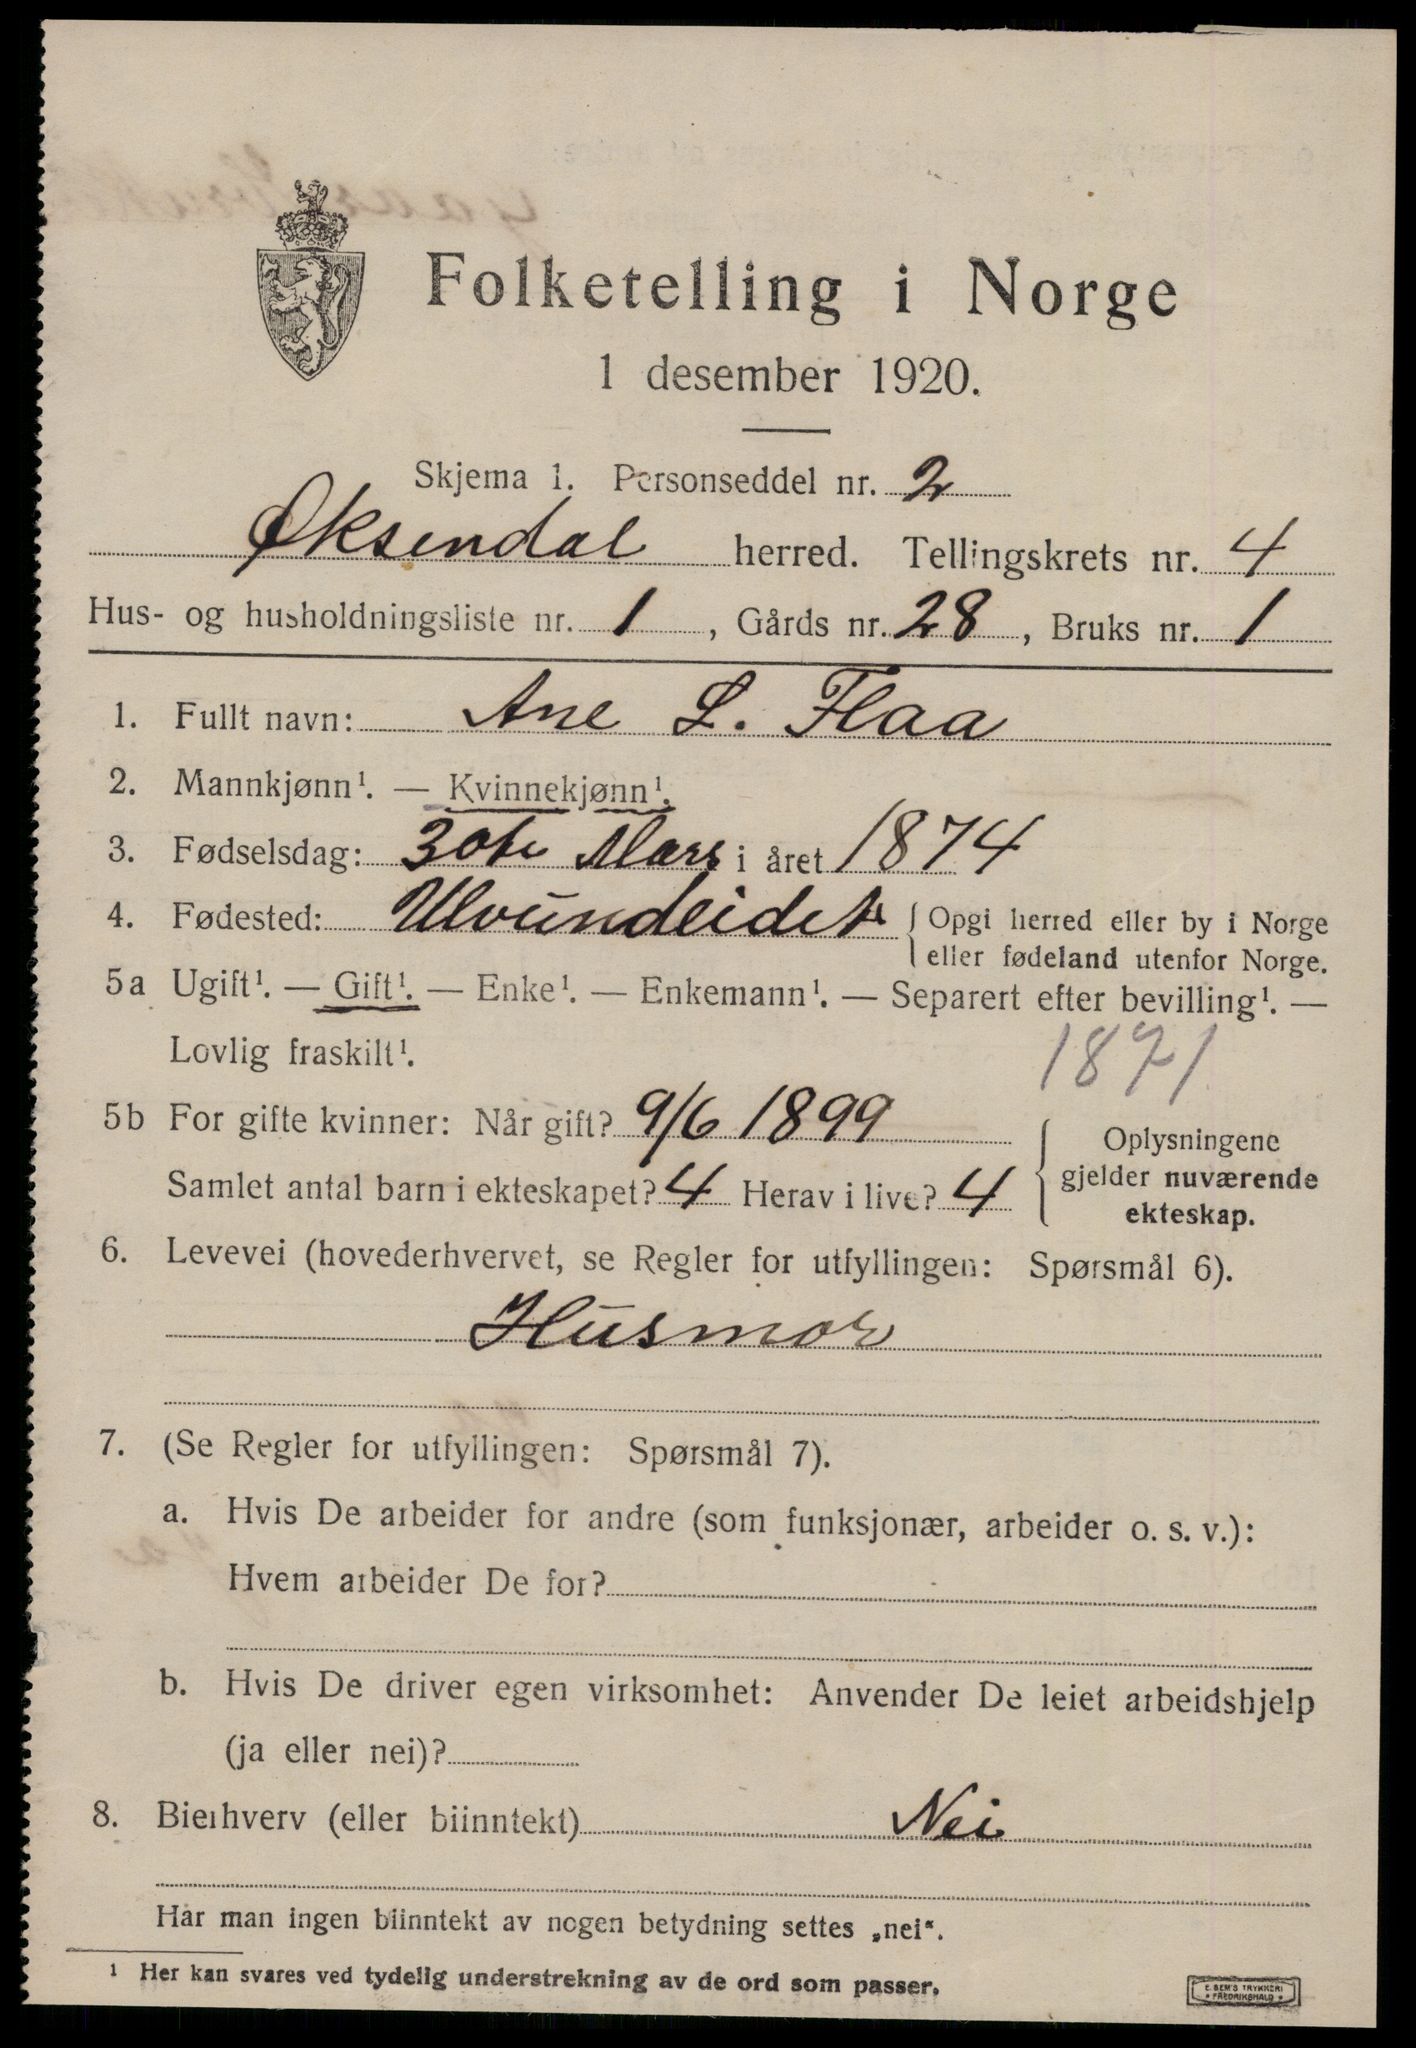 Folketelling i Norge
1 desember 1920.
Skjema 1. Personseddel nr. 2
Øksendal herred. Tellingskrets nr. 4
Hus- og husholdningsliste nr. 1, Gårds nr. 28, Bruks nr. 1
1. Fullt navn: Ane L. Flaa
2. Mannkjønn¹. — Kvinnekjønn¹.
3. Fødselsdag: 30te Mars i året 1874
4. Fødested: Ulvundeidet { Opgi herred eller by i Norge
eller fødeland utenfor Norge.
5a Ugift¹. — Gift¹. — Enke¹. — Enkemann¹. — Separert efter bevilling¹. —
Lovlig fraskilt¹. 1871
5b For gifte kvinner: Når gift? 9/6 1899
Samlet antal barn i ekteskapet? 4 Herav i live? 4
{ Oplysningene
gjelder nuværende
ekteskap.
6. Levevei (hovederhvervet, se Regler for utfyllingen: Spørsmål 6).
Husmor
7. (Se Regler for utfyllingen: Spørsmål 7).
a. Hvis De arbeider for andre (som funksjonær, arbeider o. s. v.):
Hvem arbeider De for?
b. Hvis De driver egen virksomhet: Anvender De leiet arbeidshjelp
(ja eller nei)?
8. Bierhverv (eller biinntekt) Nei
Har man ingen biinntekt av nogen betydning settes „nei“.
¹ Her kan svares ved tydelig understrekning av de ord som passer.
E. SEM'S TRYKKERI
* FREDRIKSHALD *